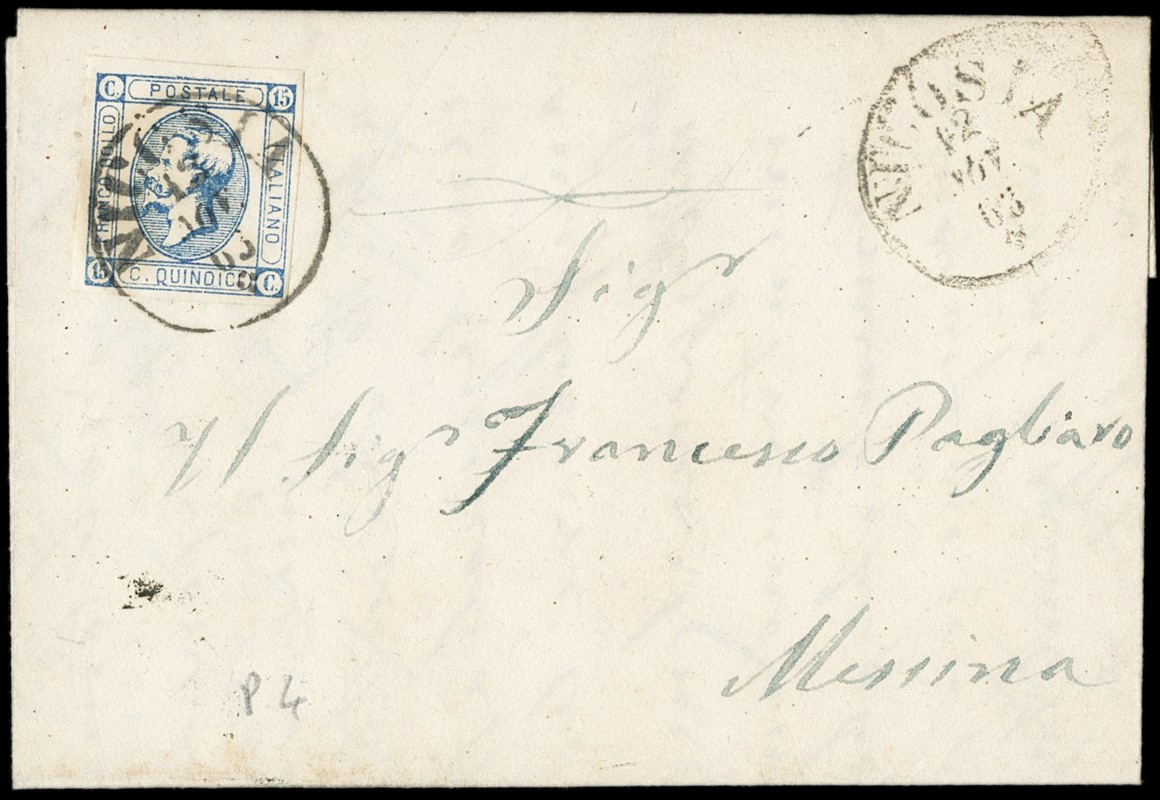 C. POSTALE 15
FRANCO BOLLO
ITALIANO
15 C. QUINDICI C.
NICOSIA
NOV
63
NICOSIA
12
NOV
63
Sigr
Il Sigr Francesco Pagliaro
Messina
P 4